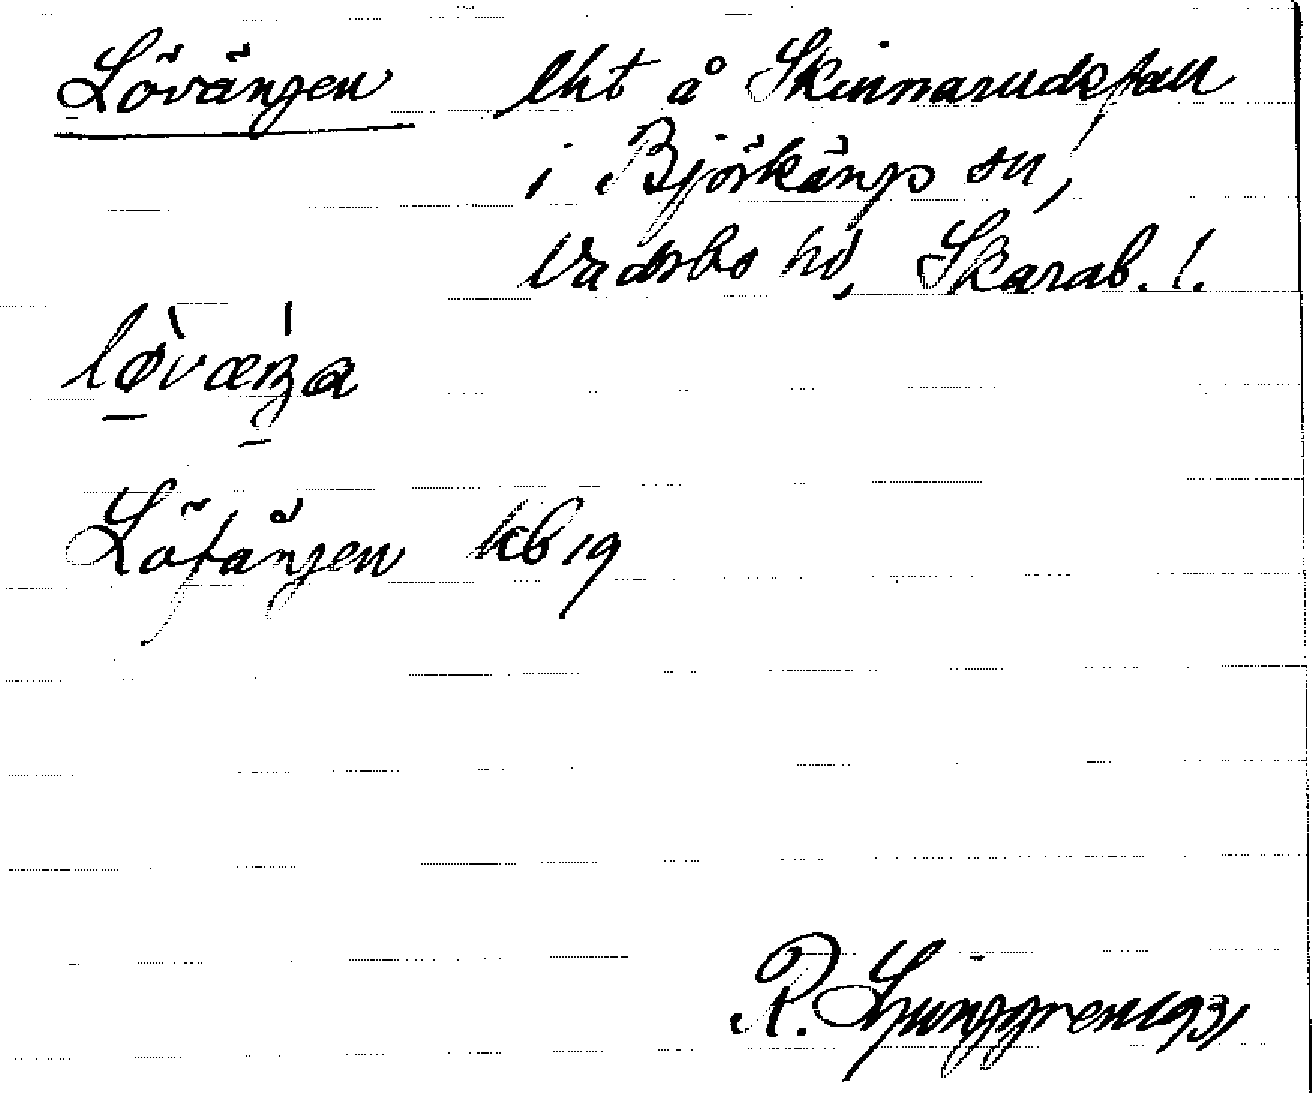 Lövängen lht å Skinnarudsfall
i Björkängs sn,
Vadsbo hd, Skarab. l.
lø̀væŋa
Löfängen kb 19
R. Ljunggren 1931